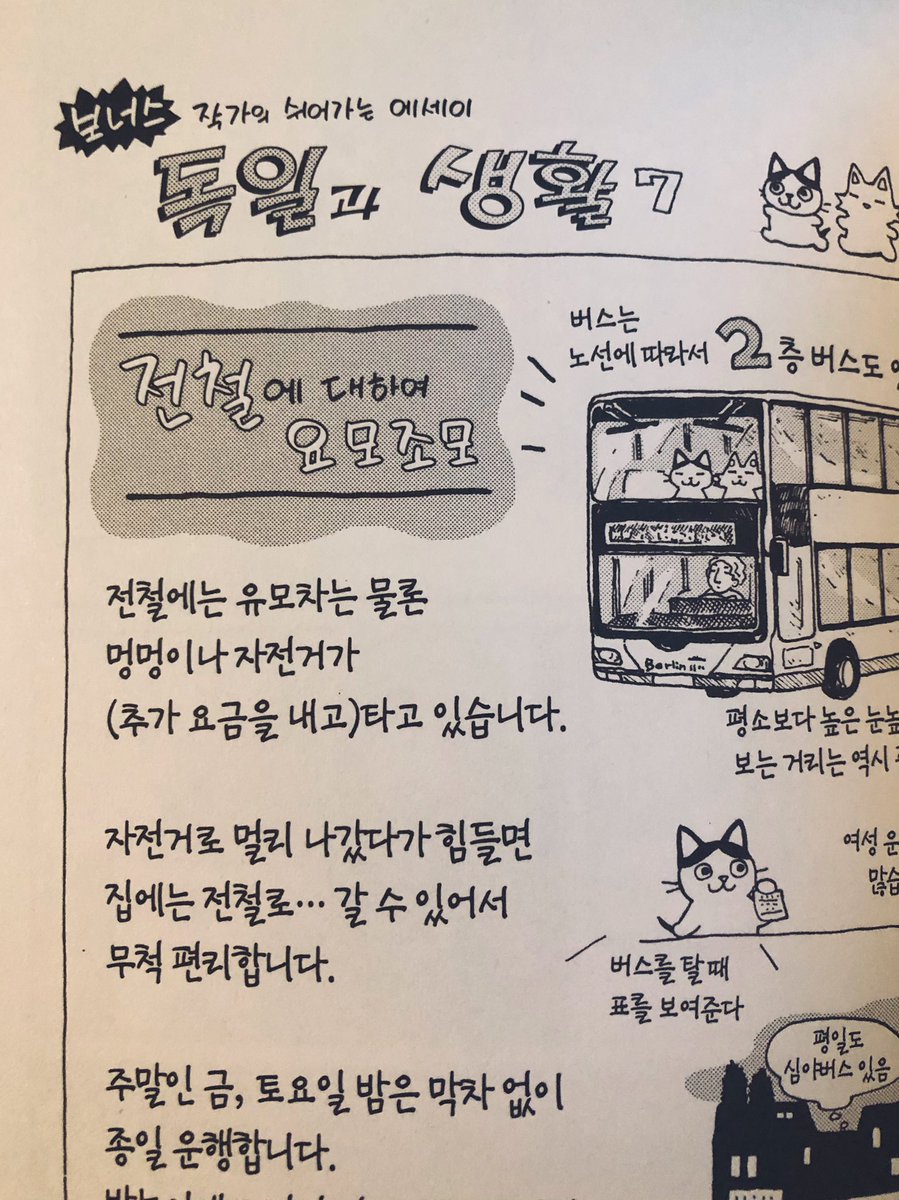 보너스 작가의 쉬어가는 에세이
독일과 생활 7
전철에 대하여
요모조모
전철에는 유모차는 물론
멍멍이나 자전거가
(추가 요금을 내고)타고 있습니다.
자전거로 멀리 나갔다가 힘들면
집에는 전철로… 갈 수 있어서
무척 편리합니다.
주말인 금, 토요일 밤은 막차 없이
종일 운행합니다.
버스는
노선에 따라서 2층 버스도
Berlin
평소보다 높은
보는 거리는 역시
여성
버스를 탈 때
표를 보여준다
평일도
심야버스 있음